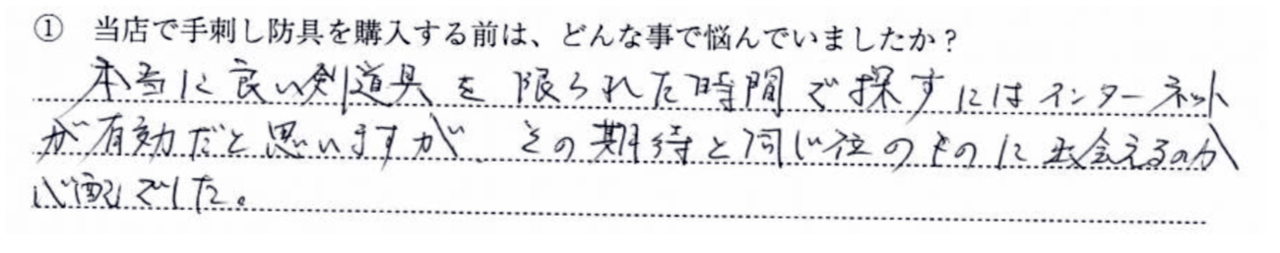 ① 当店で手刺し防具を購入する前は、どんな事で悩んでいましたか？
本当に良い剣道具を限られた時間で探すにはインターネット
が有効だと思いますが、その期待と同じ位のものに出会えるのか
心配でした。